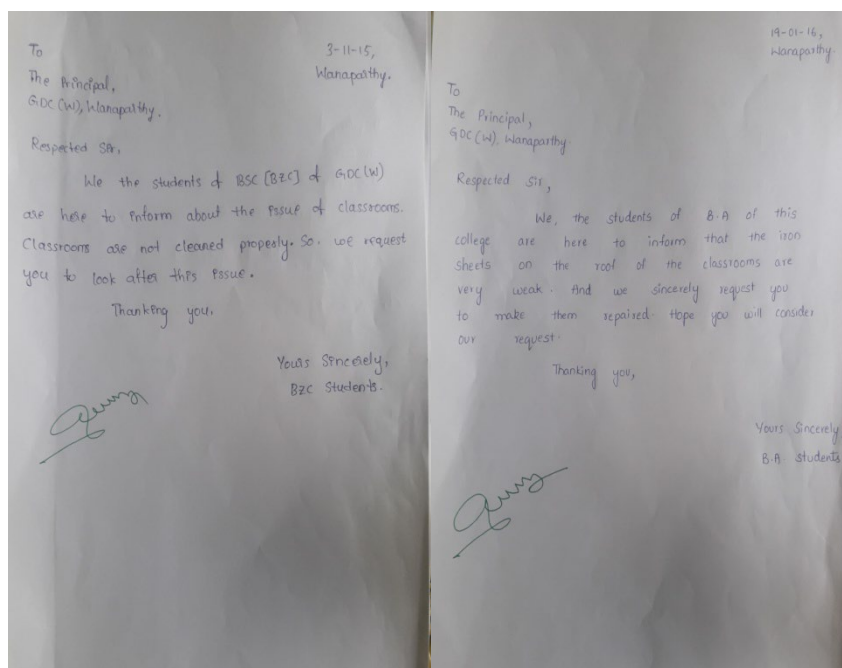 To
3-11-15,
Wanaparthy.
The Principal,
GDC (W), Wanaparthy.
Respected Sir,
We the students of BSC [BZC] of GDC (W)
are here to inform about the issue of classrooms.
Classrooms are not cleaned properly. So, we request
you to look after this issue.
Thanking you,
Yours Sincerely,
BZC Students.
19-01-16,
Wanaparthy.
To
The Principal,
GDC (W), Wanaparthy.
Respected Sir,
We, the students of B.A of this
college are here to inform that the iron
sheets on the roof of the classrooms are
very weak. And we sincerely request you
to make them repaired. Hope you will consider
our request.
Thanking you,
Yours Sincerely
B.A. Students